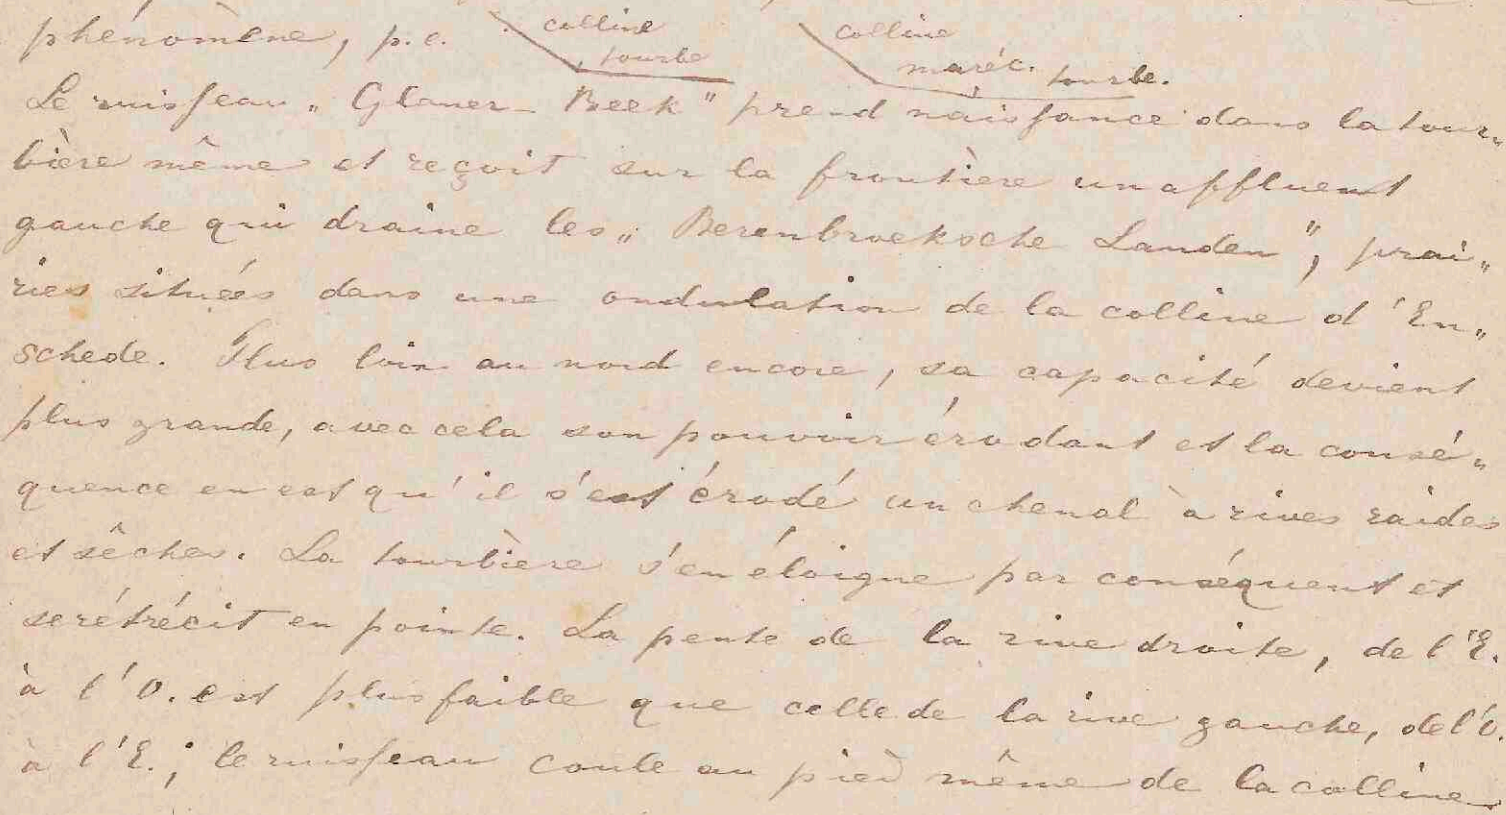 phénomène, p.e. colline tourbe colline maréc. tourbe.
Le ruisseau „Glaner-Beek" prend naissance dans la tour„
bière même et reçoit sur la frontière un affluent
gauche qui draine les „Berenbroeksche Landen", prai„
ries situées dans une ondulation de la colline d'En„
schede. Plus loin au nord encore, sa capacité devient
plus grande, avec cela son pouvoir érodant et la consé„
quence en est qu'il s'est érodé un chenal à rives raides
et sêches. La tourbière s'en éloigne par conséquent et
se rétrécit en pointe. La pente de la rive droite, de l'E.
à l'O. est plus faible que celle de la rive gauche, de l'O.
à l'E.; le ruisseau coule au pied même de la colline